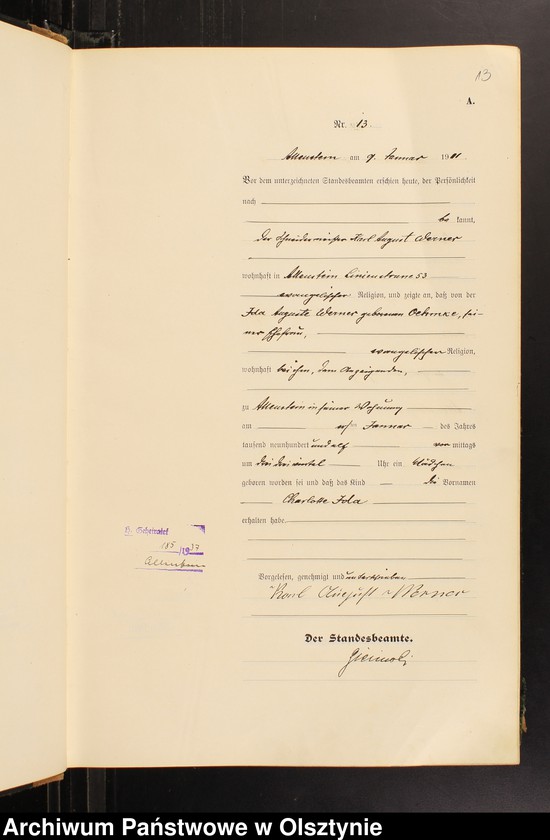 13
A.
Nr. 13.
Allenstein am 9. Januar 1911
Vor dem unterzeichneten Standesbeamten erschien heute, der Persönlichkeit
nach
be kannt,
der Schneidermeister Karl August Werner
wohnhaft in Allenstein Linienstrasse 53
evangelischer Religion, und zeigte an, daß von der
Ida Auguste Werner geborenen Oehmke, sei-
ner Ehefrau,
evangelischer Religion,
wohnhaft bei ihm, dem Anzeigenden,
zu Allenstein in seiner Wohnung
am Januar des Jahres
tausend neunhundert und elf vor mittags
um drei dreiviertel Uhr ein Mädchen
geboren worden sei und daß das Kind die Vornamen
Charlotte Ida
erhalten habe.
Geheiratet
185 /1937
Allenstein
Vorgelesen, genehmigt und unterschrieben
Karl August Werner
Der Standesbeamte.
Archiwum Państwowe w Olsztynie